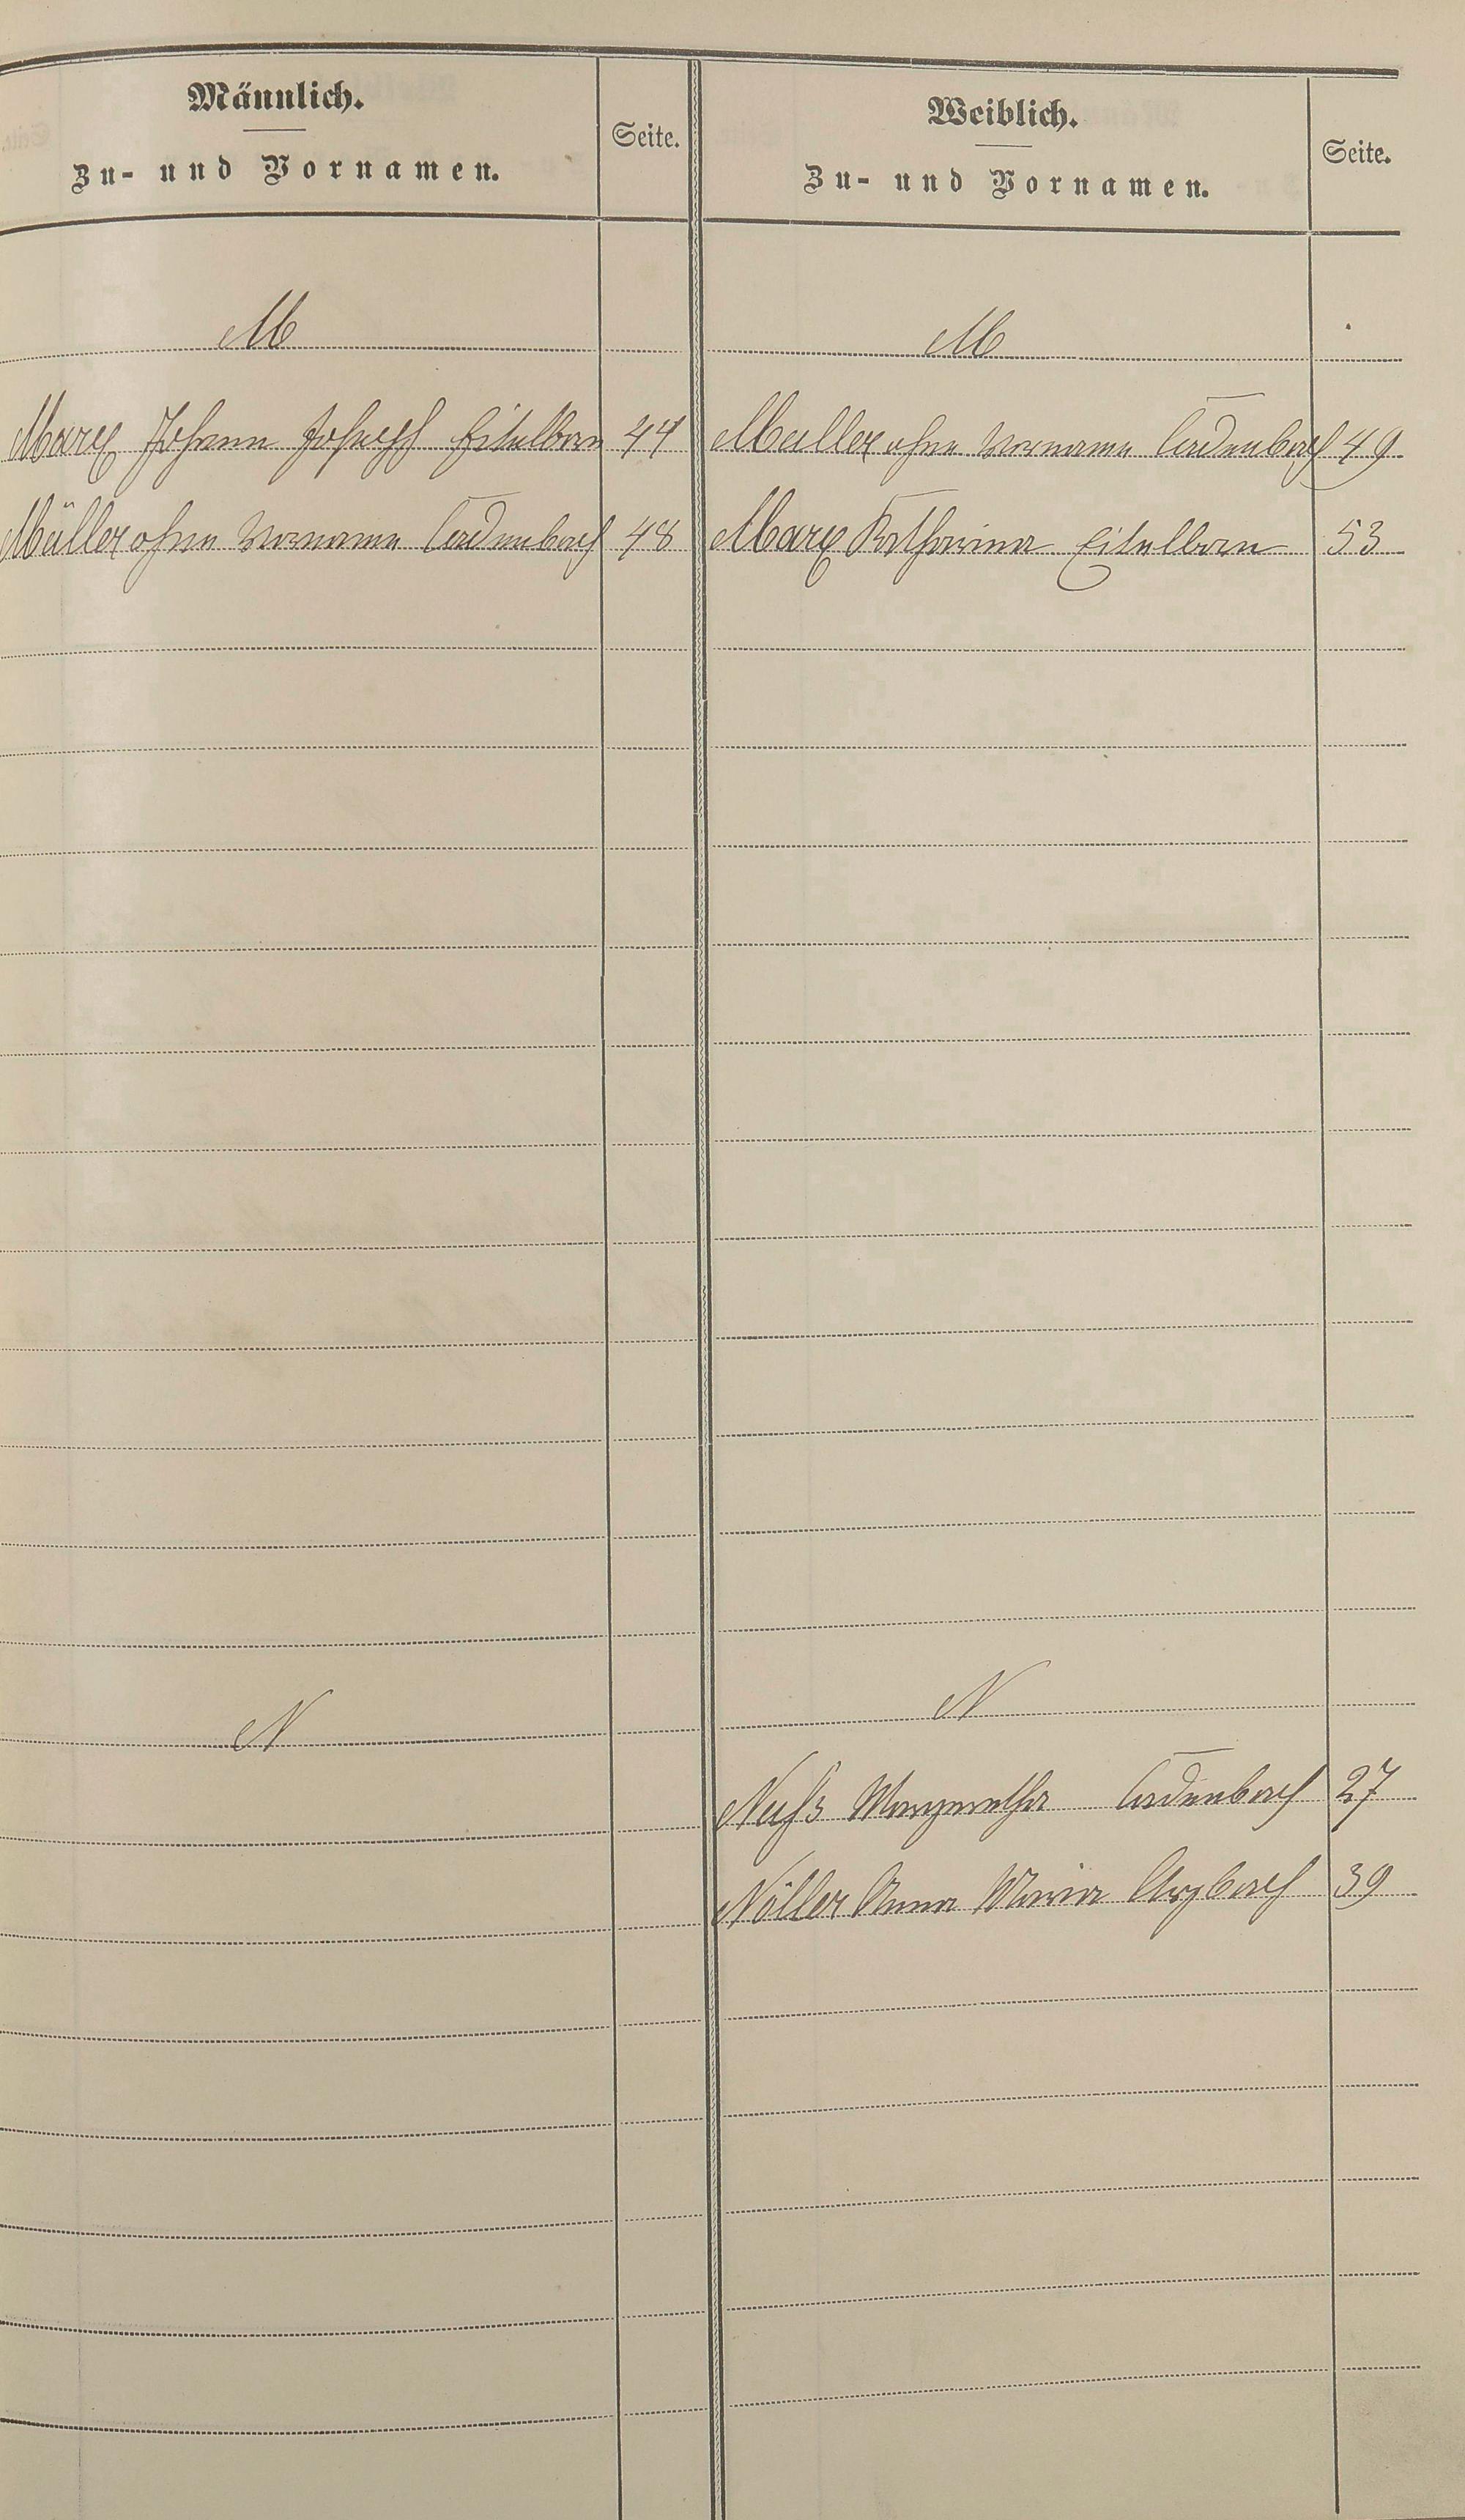 Männlich.
Zu- und Vornamen.
Seite.
M
Marx Johann Joseph Eitelborn 44
Müller ohne Vorname Cadenbach 48
N
Weiblich.
Zu- und Vornamen.
Seite.
M
Muller ohne Vorname Cadenbach 49
Marx Katharina Eitelborn 53
N
Neuß Margaretha Cadenbach 27
Nöller Anna Maria Arzbach 39